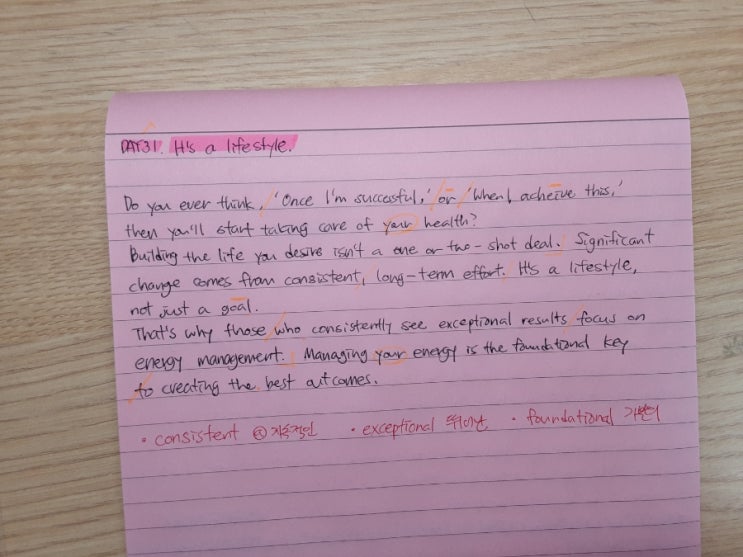 DAY31. It's a lifestyle.
Do you ever think, 'Once I'm successful,' or 'When I acheive this,'
then you'll start taking care of your health?
Building the life you desire isn't a one or two-shot deal. Significant
change comes from consistent, long-term effort. It's a lifestyle,
not just a goal.
That's why those who consistently see exceptional results focus on
energy management. Managing your energy is the foundational key
to creating the best outcomes.
• consistent 지속적인 • exceptional 뛰어난 • foundational